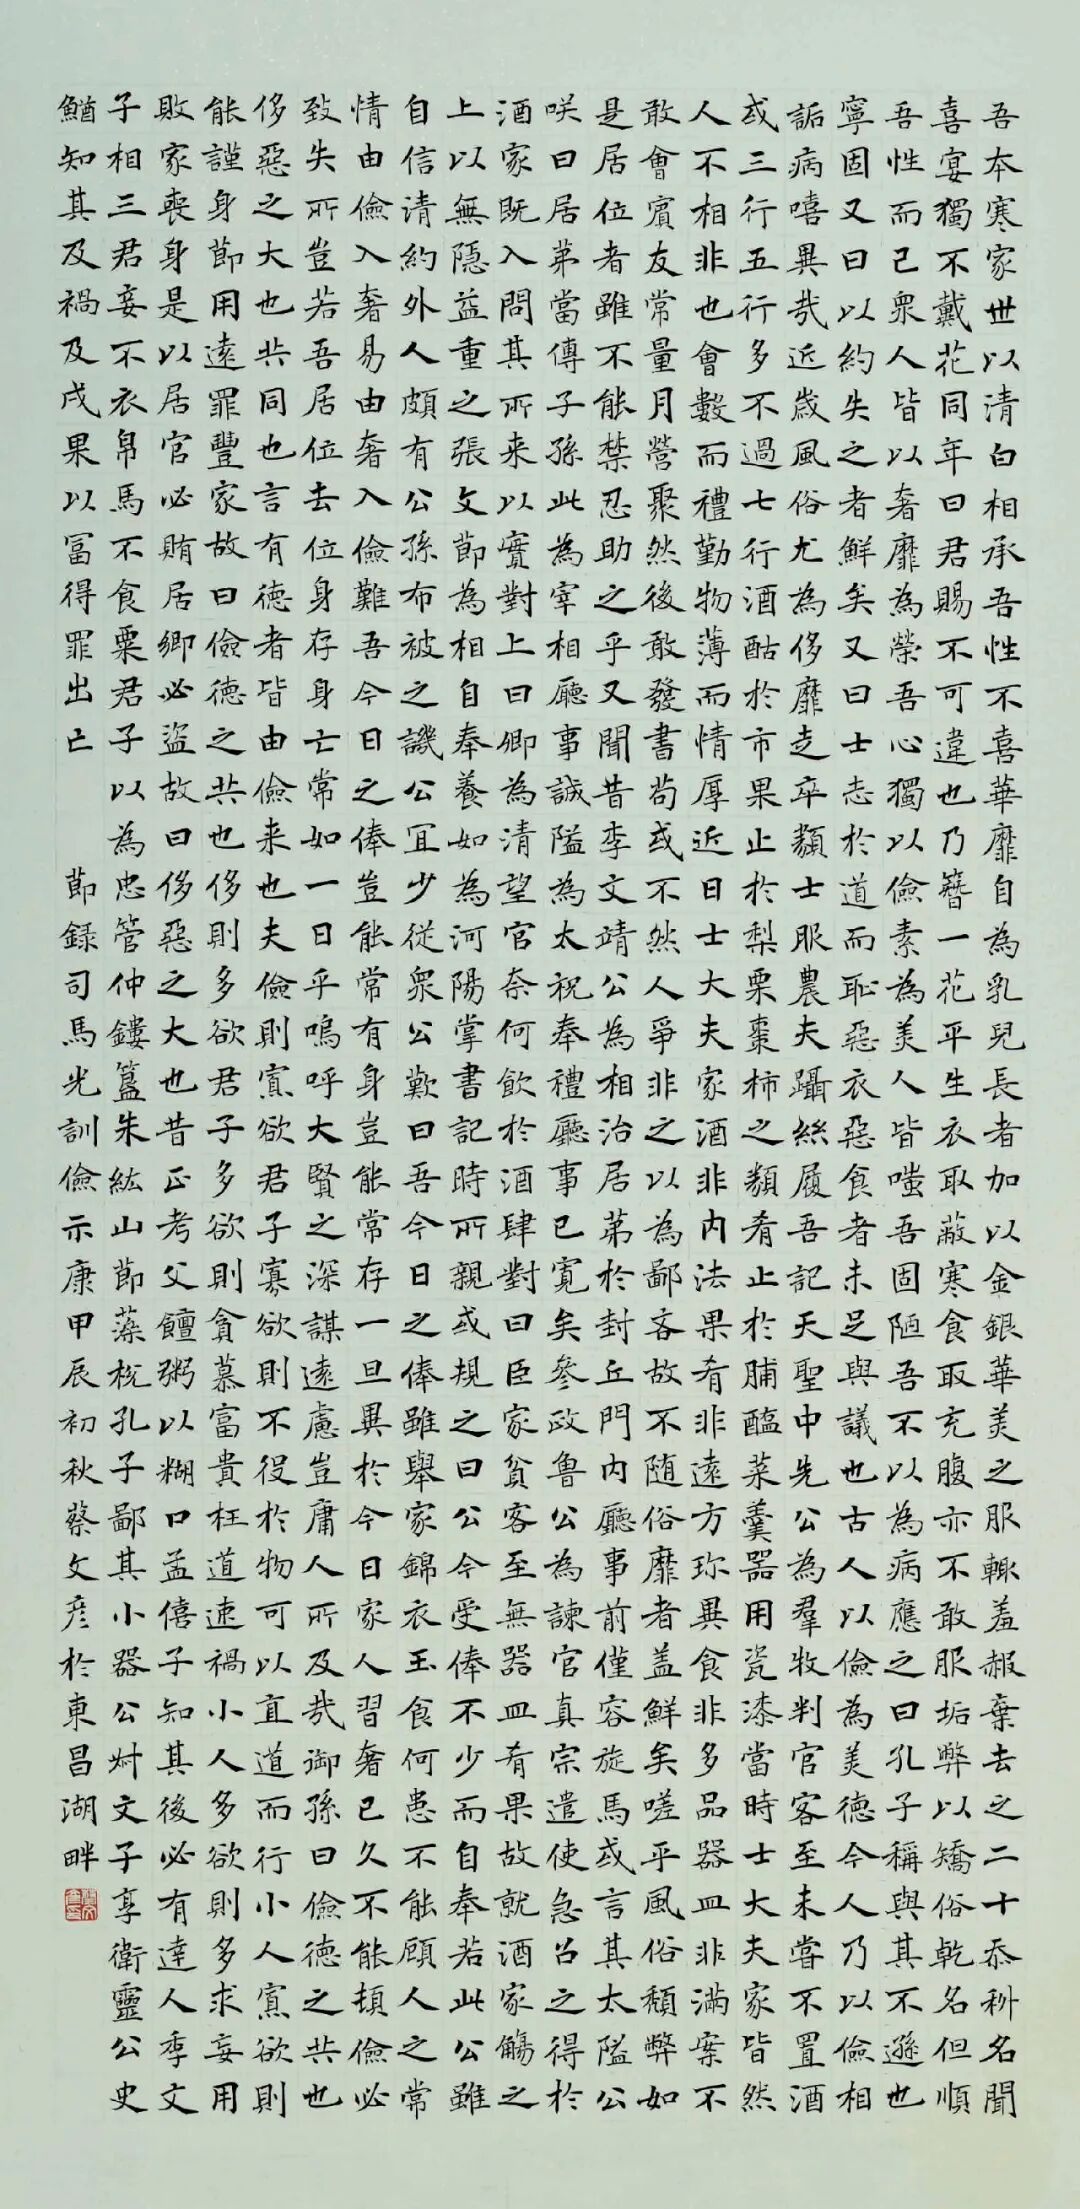 吾本寒家世以清白相承吾性不喜華靡自為乳兒長者加以金銀華美之服輒羞赧棄去之二十忝科名聞
喜宴獨不戴花同年曰君賜不可違也乃簪一花平生衣取蔽寒食取充腹亦不敢服垢弊以矯俗乾名但順
吾性而已眾人皆以奢靡為榮吾心獨以儉素為美人皆嗤吾固陋吾不以為病應之曰孔子稱與其不遜也
寧固又曰以約失之者鮮矣又曰士志於道而恥惡衣惡食者未足與議也古人以儉為美德今人乃以儉相
詬病嘻異哉近歲風俗尤為侈靡走卒類士服農夫躡絲履吾記天聖中先公為羣牧判官客至未嘗不置酒
或三行五行多不過七行酒酤於市果止於梨栗棗柿之類肴止於脯醢菜羹器用瓷漆當時士大夫家皆然
人不相非也會數而禮勤物薄而情厚近日士大夫家酒非內法果肴非遠方珍異食非多品器皿非滿案不
敢會賓友常量月營聚然後敢發書苟或不然人爭非之以為鄙吝故不随俗靡者蓋鮮矣嗟乎風俗頹弊如
是居位者雖不能禁忍助之乎又聞昔李文靖公為相治居第於封丘門內廳事前僅容旋馬或言其太隘公
咲曰居第當傳子孫此為宰相廳事誠隘為太祝奉禮廳事已寬矣參政魯公為諫官真宗遣使急召之得於
酒家既入問其所来以實對上曰卿為清望官奈何飲於酒肆對曰臣家貧客至無器皿肴果故就酒家觴之
上以無隱益重之張文節為相自奉養如為河陽掌書記時所親或規之曰公今受俸不少而自奉若此公雖
自信清約外人頗有公孫布被之譏公宜少從眾公歎曰吾今日之俸雖舉家錦衣玉食何患不能顧人之常
情由儉入奢易由奢入儉難吾今日之俸豈能常有身豈能常存一旦異於今日家人習奢已久不能頓儉必
致失所豈若吾居位去位身存身亡常如一日乎嗚呼大賢之深謀遠慮豈庸人所及哉御孫曰儉德之共也
侈惡之大也共同也言有德者皆由儉来也夫儉則寡欲君子寡欲則不役於物可以直道而行小人寡欲則
能謹身節用遠罪豐家故曰儉德之共也侈則多欲君子多欲則貪慕富貴枉道速禍小人多欲則多求妄用
敗家喪身是以居官必賄居鄉必盜故曰侈惡之大也昔正考父饘粥以糊口孟僖子知其後必有達人季文
子相三君妾不衣帛馬不食粟君子以為忠管仲鏤簋朱紘山節藻梲孔子鄙其小器公叔文子享衛靈公史
鰌知其及禍及戌果以富得罪出亡 節録司馬光訓儉示康甲辰初秋蔡文彦於東昌湖畔